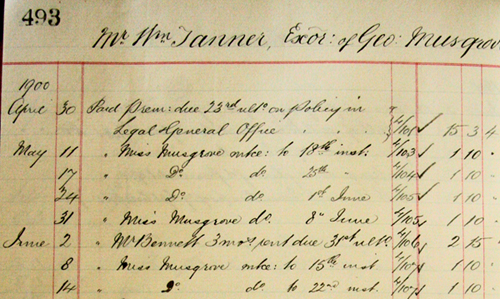 493
Mr Wm Tanner, Exor: of Geo: Musgrov
1900
April 30 Paid Prem: due 23rd ulto on Policy in
Legal General Office " " " 4/101 15 3 4
May 11 " Miss Musgrove mtce: to 18th inst: 4/103 1 10 "
17 " Do do 25th " 4/104 1 10 "
24 " Do do 1st June 4/105 1 10 "
31 " Miss Musgrove do. 8th June 4/105 1 10 "
June 2 " Mr Bennett 3 mos rent due 31st ulto. 4/106 2 15 "
8 " Miss Musgrove mtce: to 15th inst 1 10 "
14 " Do do to 22nd inst 1 10 "